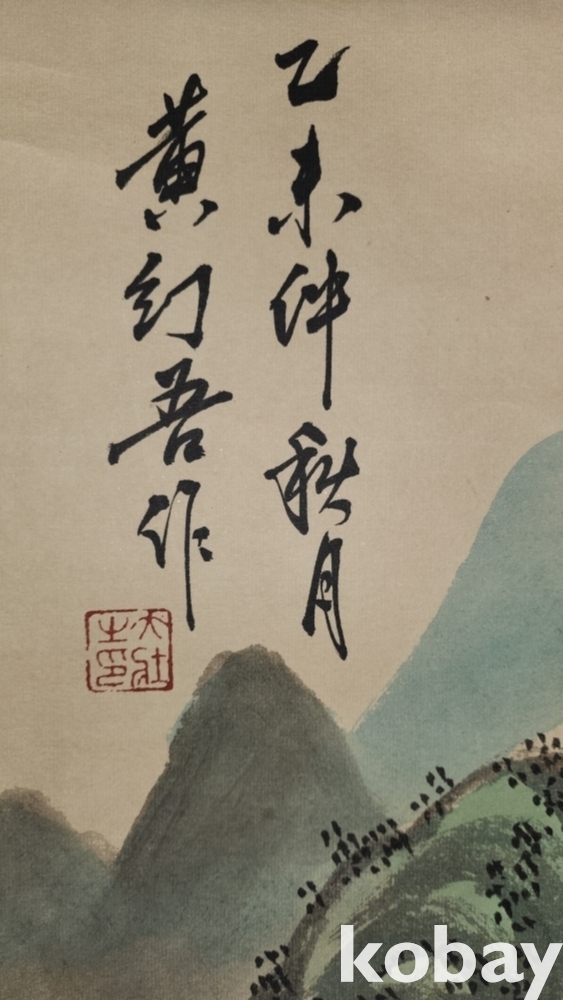 乙未仲秋月
黄幻吾作
kobay